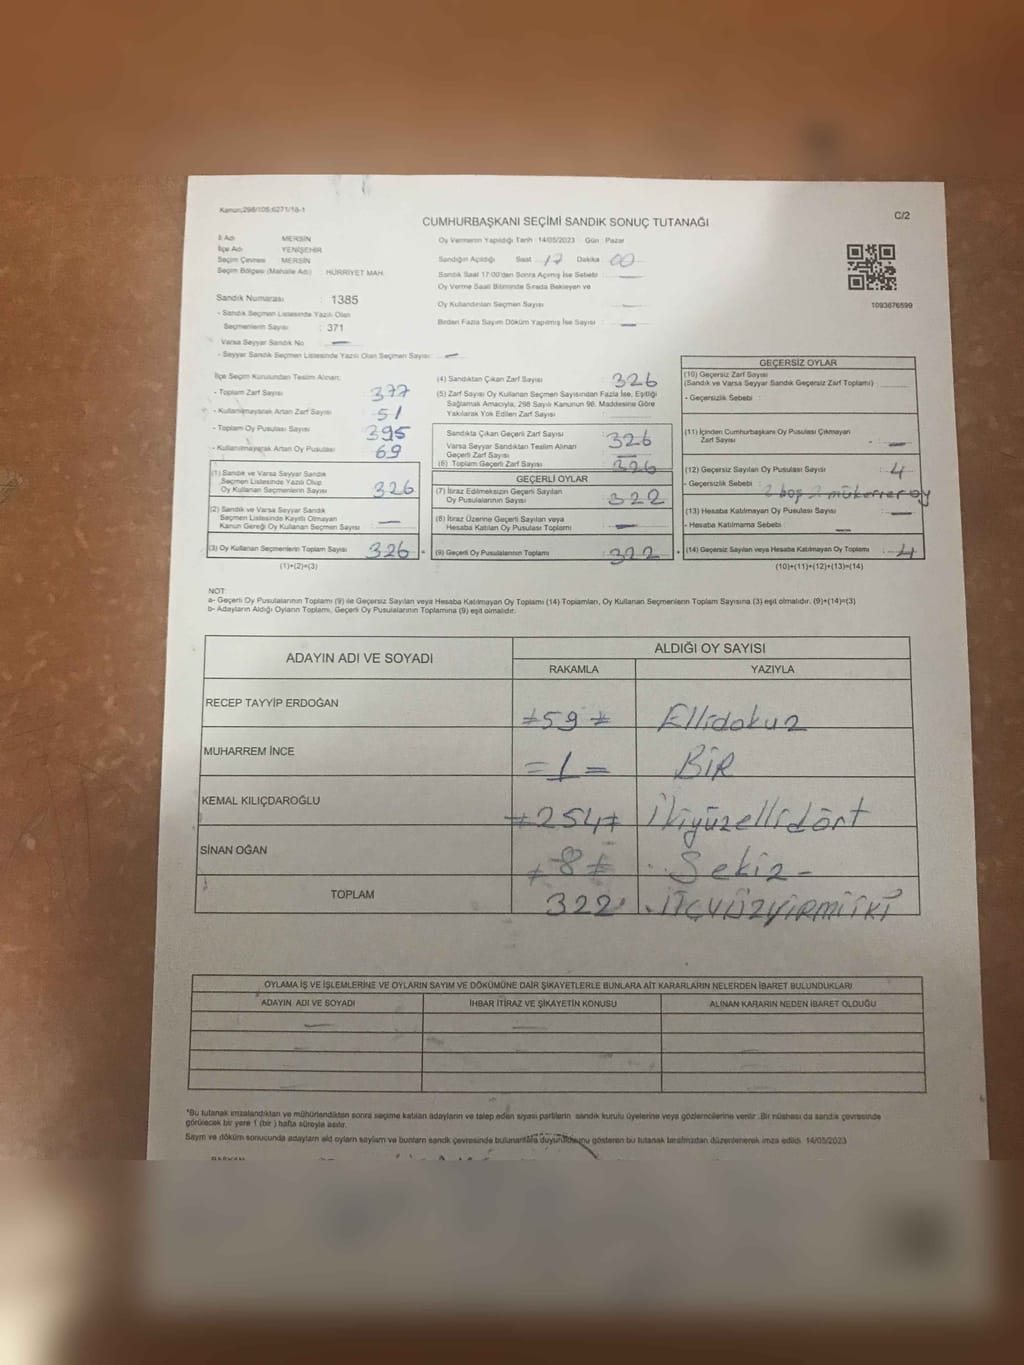 Kanun;298/105;6271/18-1
C/2
CUMHURBAŞKANI SEÇİMİ SANDIK SONUÇ TUTANAĞI
İl Adı MERSİN
İlçe Adı YENİŞEHİR
Seçim Çevresi MERSİN
Seçim Bölgesi (Mahalle Adı) HÜRRİYET MAH.
Oy Vermenin Yapıldığı Tarih : 14/05/2023 Gün : Pazar
Sandığın Açıldığı Saat 17 Dakika 00
Sandık Saat 17:00'den Sonra Açılmış İse Sebebi :
Oy Verme Saati Bitiminde Sırada Bekleyen ve
Oy Kullandırılan Seçmen Sayısı
Birden Fazla Sayım Döküm Yapılmış İse Sayısı :
1093676599
Sandık Numarası : 1385
- Sandık Seçmen Listesinde Yazılı Olan
Seçmenlerin Sayısı : 371
Varsa Seyyar Sandık No
- Seyyar Sandık Seçmen Listesinde Yazılı Olan Seçmen Sayısı:
İlçe Seçim Kurulundan Teslim Alınan;
- Toplam Zarf Sayısı 377
- Kullanılmayarak Artan Zarf Sayısı 51
- Toplam Oy Pusulası Sayısı 395
- Kullanılmayarak Artan Oy Pusulası 69
(1) Sandık ve Varsa Seyyar Sandık
Seçmen Listesinde Yazılı Olup
Oy Kullanan Seçmenlerin Sayısı 326
(2) Sandık ve Varsa Seyyar Sandık
Seçmen Listesinde Kayıtlı Olmayan
Kanun Gereği Oy Kullanan Seçmen Sayısı :
(3) Oy Kullanan Seçmenlerin Toplam Sayısı 326 =
(1)+(2)=(3)
(4) Sandıktan Çıkan Zarf Sayısı 326
(5) Zarf Sayısı Oy Kullanan Seçmen Sayısından Fazla İse, Eşitliği
Sağlamak Amacıyla; 298 Sayılı Kanunun 98. Maddesine Göre
Yakılarak Yok Edilen Zarf Sayısı
Sandıkta Çıkan Geçerli Zarf Sayısı : 326
Varsa Seyyar Sandıktan Teslim Alınan
Geçerli Zarf Sayısı
(6) Toplam Geçerli Zarf Sayısı : 326
GEÇERLİ OYLAR
(7) İtiraz Edilmeksizin Geçerli Sayılan
Oy Pusulalarının Sayısı : 322
(8) İtiraz Üzerine Geçerli Sayılan veya
Hesaba Katılan Oy Pusulası Toplamı
(9) Geçerli Oy Pusulalarının Toplamı : 322 +
GEÇERSİZ OYLAR
(10) Geçersiz Zarf Sayısı
(Sandık ve Varsa Seyyar Sandık Geçersiz Zarf Toplamı)
- Geçersizlik Sebebi :
(11) İçinden Cumhurbaşkanı Oy Pusulası Çıkmayan
Zarf Sayısı
(12) Geçersiz Sayılan Oy Pusulası Sayısı : 4
- Geçersizlik Sebebi : 2 boş 2 mükerrer oy
(13) Hesaba Katılmayan Oy Pusulası Sayısı
- Hesaba Katılmama Sebebi :
(14) Geçersiz Sayılan veya Hesaba Katılmayan Oy Toplamı : 4
(10)+(11)+(12)+(13)=(14)
NOT:
a- Geçerli Oy Pusulalarının Toplamı (9) ile Geçersiz Sayılan veya Hesaba Katılmayan Oy Toplamı (14) Toplamları, Oy Kullanan Seçmenlerin Toplam Sayısına (3) eşit olmalıdır. (9)+(14)=(3)
b- Adayların Aldığı Oyların Toplamı, Geçerli Oy Pusulalarının Toplamına (9) eşit olmalıdır.
ADAYIN ADI VE SOYADI ALDIĞI OY SAYISI
RAKAMLA YAZIYLA
RECEP TAYYİP ERDOĞAN 59 Ellidokuz
MUHARREM İNCE =1= BİR
KEMAL KILIÇDAROĞLU 254 İkiyüzellidört
SİNAN OĞAN 8 Sekiz-
TOPLAM 322 ÜÇYÜZYİRMİİKİ
OYLAMA İŞ VE İŞLEMLERİNE VE OYLARIN SAYIM VE DÖKÜMÜNE DAİR ŞİKAYETLERLE BUNLARA AİT KARARLARIN NELERDEN İBARET BULUNDUKLARI
ADAYIN ADI VE SOYADI İHBAR İTİRAZ VE ŞİKAYETİN KONUSU ALINAN KARARIN NEDEN İBARET OLDUĞU
*Bu tutanak imzalandıktan ve mühürlendikten sonra seçime katılan adayların ve talep eden siyasi partilerin sandık kurulu üyelerine veya gözlemcilerine verilir. Bir nüshası da sandık çevresinde
görülecek bir yere 1 (bir ) hafta süreyle asılır.
Sayım ve döküm sonucunda adayların ald oyların sayıları ve bunların sandık çevresinde bulunanlara duyurulduğunu gösteren bu tutanak tarafımızdan düzenlenerek imza edildi. 14/05/2023